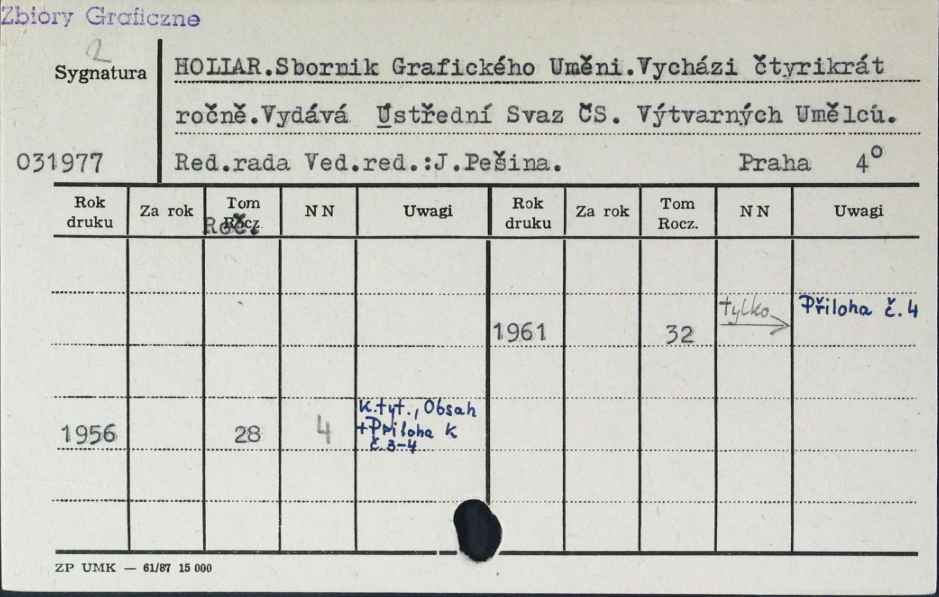 Zbiory Graficzne
2
Sygnatura
HOLLAR.Sbornik Grafického Uměni.Vycházi čtyrikrát
ročně.Vydává Ústřední Svaz ČS. Výtvarných Umělcú.
031977
Red.rada Ved.red.:J.Pešina. Praha 4°
Rok druku Za rok Tom Rocz. N N Uwagi Rok druku Za rok Tom Rocz. N N Uwagi
Roč.
1961 32 tylko Přiloha č.4
1956 28 4 K.tyt., Obsah
+Přiloha k
č.3-4
ZP UMK — 61/87 15 000